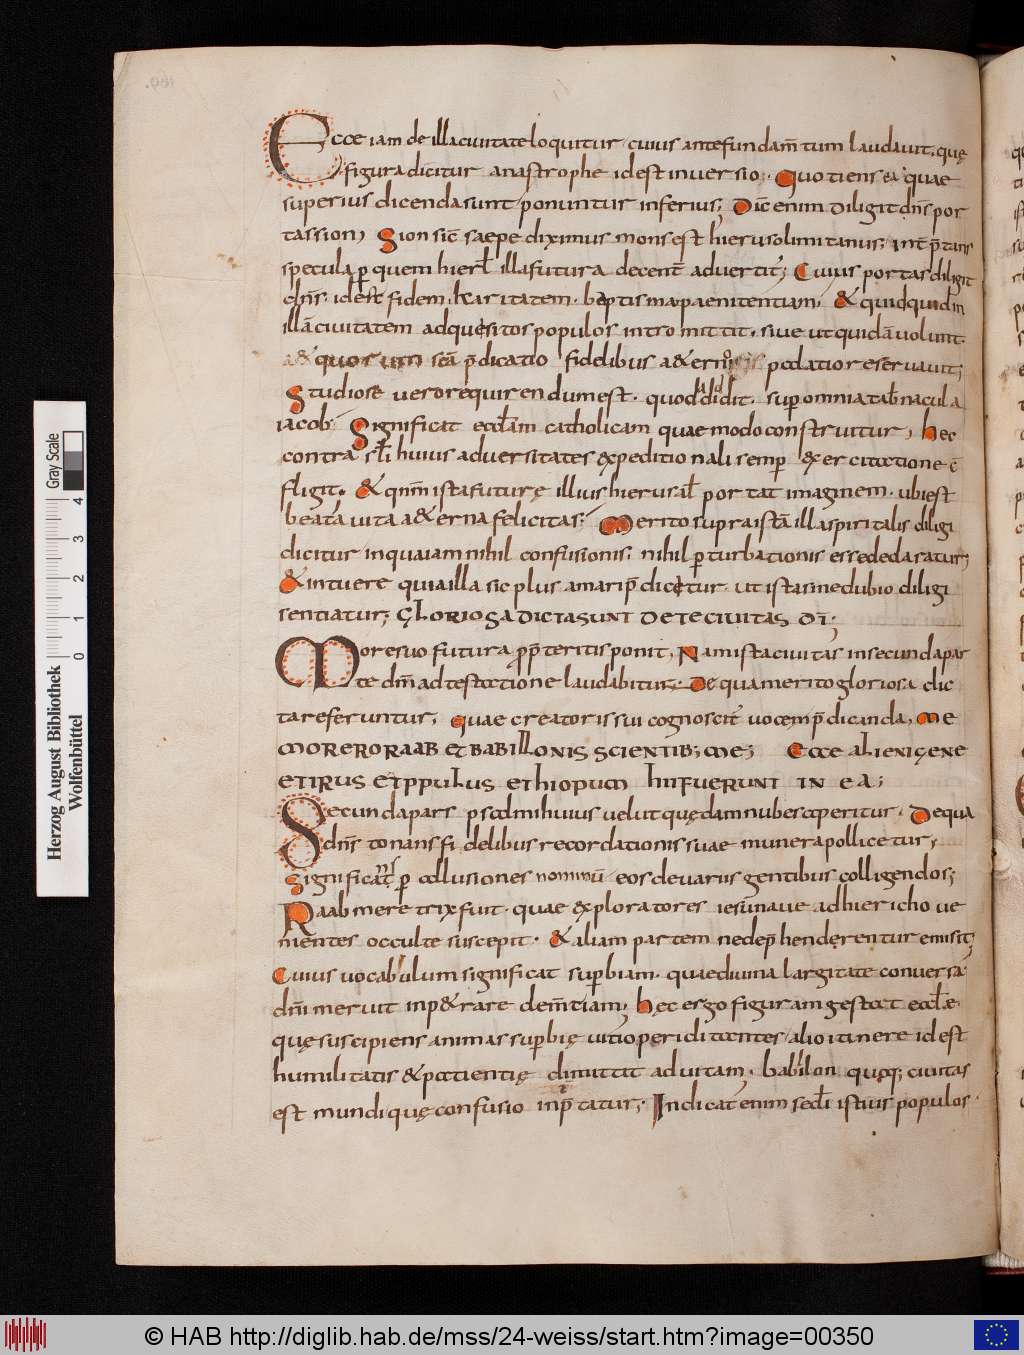 Ecce iam de illa ciuitate loquitur cuius ante fundam̅tum laudauit. quę
figura dicitur anastrophe id est inuersio. Quotiens ea quae
superius dicenda sunt ponuntur inferius; Dic̅ enim Diligit dn̅s por
tas sion, Sion sic̅ saepe diximus mons est hierusolimitanus; int̅p̅tans
specula p̱ quem hierl̅ illa futura decent̅ aduertit̅; Cuius portas diligit
dn̅s. id est fidem, karitatem. baptisma paenitentiam, & quidquid in
illa̅ ciuitatem adquesitos populos intromittit. siue ut quida̅ uolunt.
a& quorum sc̅a p̅dicatio fidelibus a&ernis
Studiose uero requirendum est. quod addidit. sup̱ omnia tab̅nacula
iacob. Significat eccl̅am catholicam quae modo construitur, hęc
contra sc̅li huius aduersitates expeditionali semp̱ exercitatione c̅
fligit. & qm̅ ista futurę illius hierusal̅ portat imaginem. ubi est
beata uita a&erna felicitas; Merito supra ista̅ illa spiritalis diligi
dicitur in qua iam nihil confusionis. nihil p̱turbationis
& intuere quia illa sic plus amari p̅dicetur. ut istas in edubio diligi
sentiatur; GLORIOSA DICTA SUNT DE TE CIUITAS DI̅;
More suo futura p̱p̅teritis ponit, Nam ista ciuitas in secunda par
te dm̅ adtestatione laudabitur. De qua merito gloriosa dic
ta referuntur, quae creatoris sui cognoscit̅ uocem p̅dicanda, ME
MORERO RAAB ET BABILLONIS SCIENTIB; ME; Ecce ALIENIGENE
ET TIRUS ET PPULUS ETHIOPUM HII FUERUNT IN EA;
Secunda pars psalmi huius uelut quędam nubes aperitur. De qua
dn̅s tonans fidelibus recordationis suae munera pollicetur,
Significat̅ p̱ allusiones nominu̅ eos de uariis gentibus colligendos;
Raab meretrix fuit. quae exploratores iesu naue ad hiericho ue
nientes occulte suscepit. & aliam partem ne dep̅henderentur emisit;
Cuius uocabulum significat sup̱biam. quae diuina largitate conuersa
dn̅i meruit inp&rare clem̅tiam, hęc ergo figuram gestat eccl̅ae
quę suscipiens animas sup̱bię uitio periditantes alio itinere id est
humilitatis & patientię dimittit ad uitam. babilon quoq; ciuitas
est mundi quę confusio inp̅tatur; Indicat enim sed̅i istius populos
Herzog August Bibliothek
Wolfenbüttel
Gray Scale
0 1 2 3 4
© HAB http://diglib.hab.de/mss/24-weiss/start.htm?image=00350